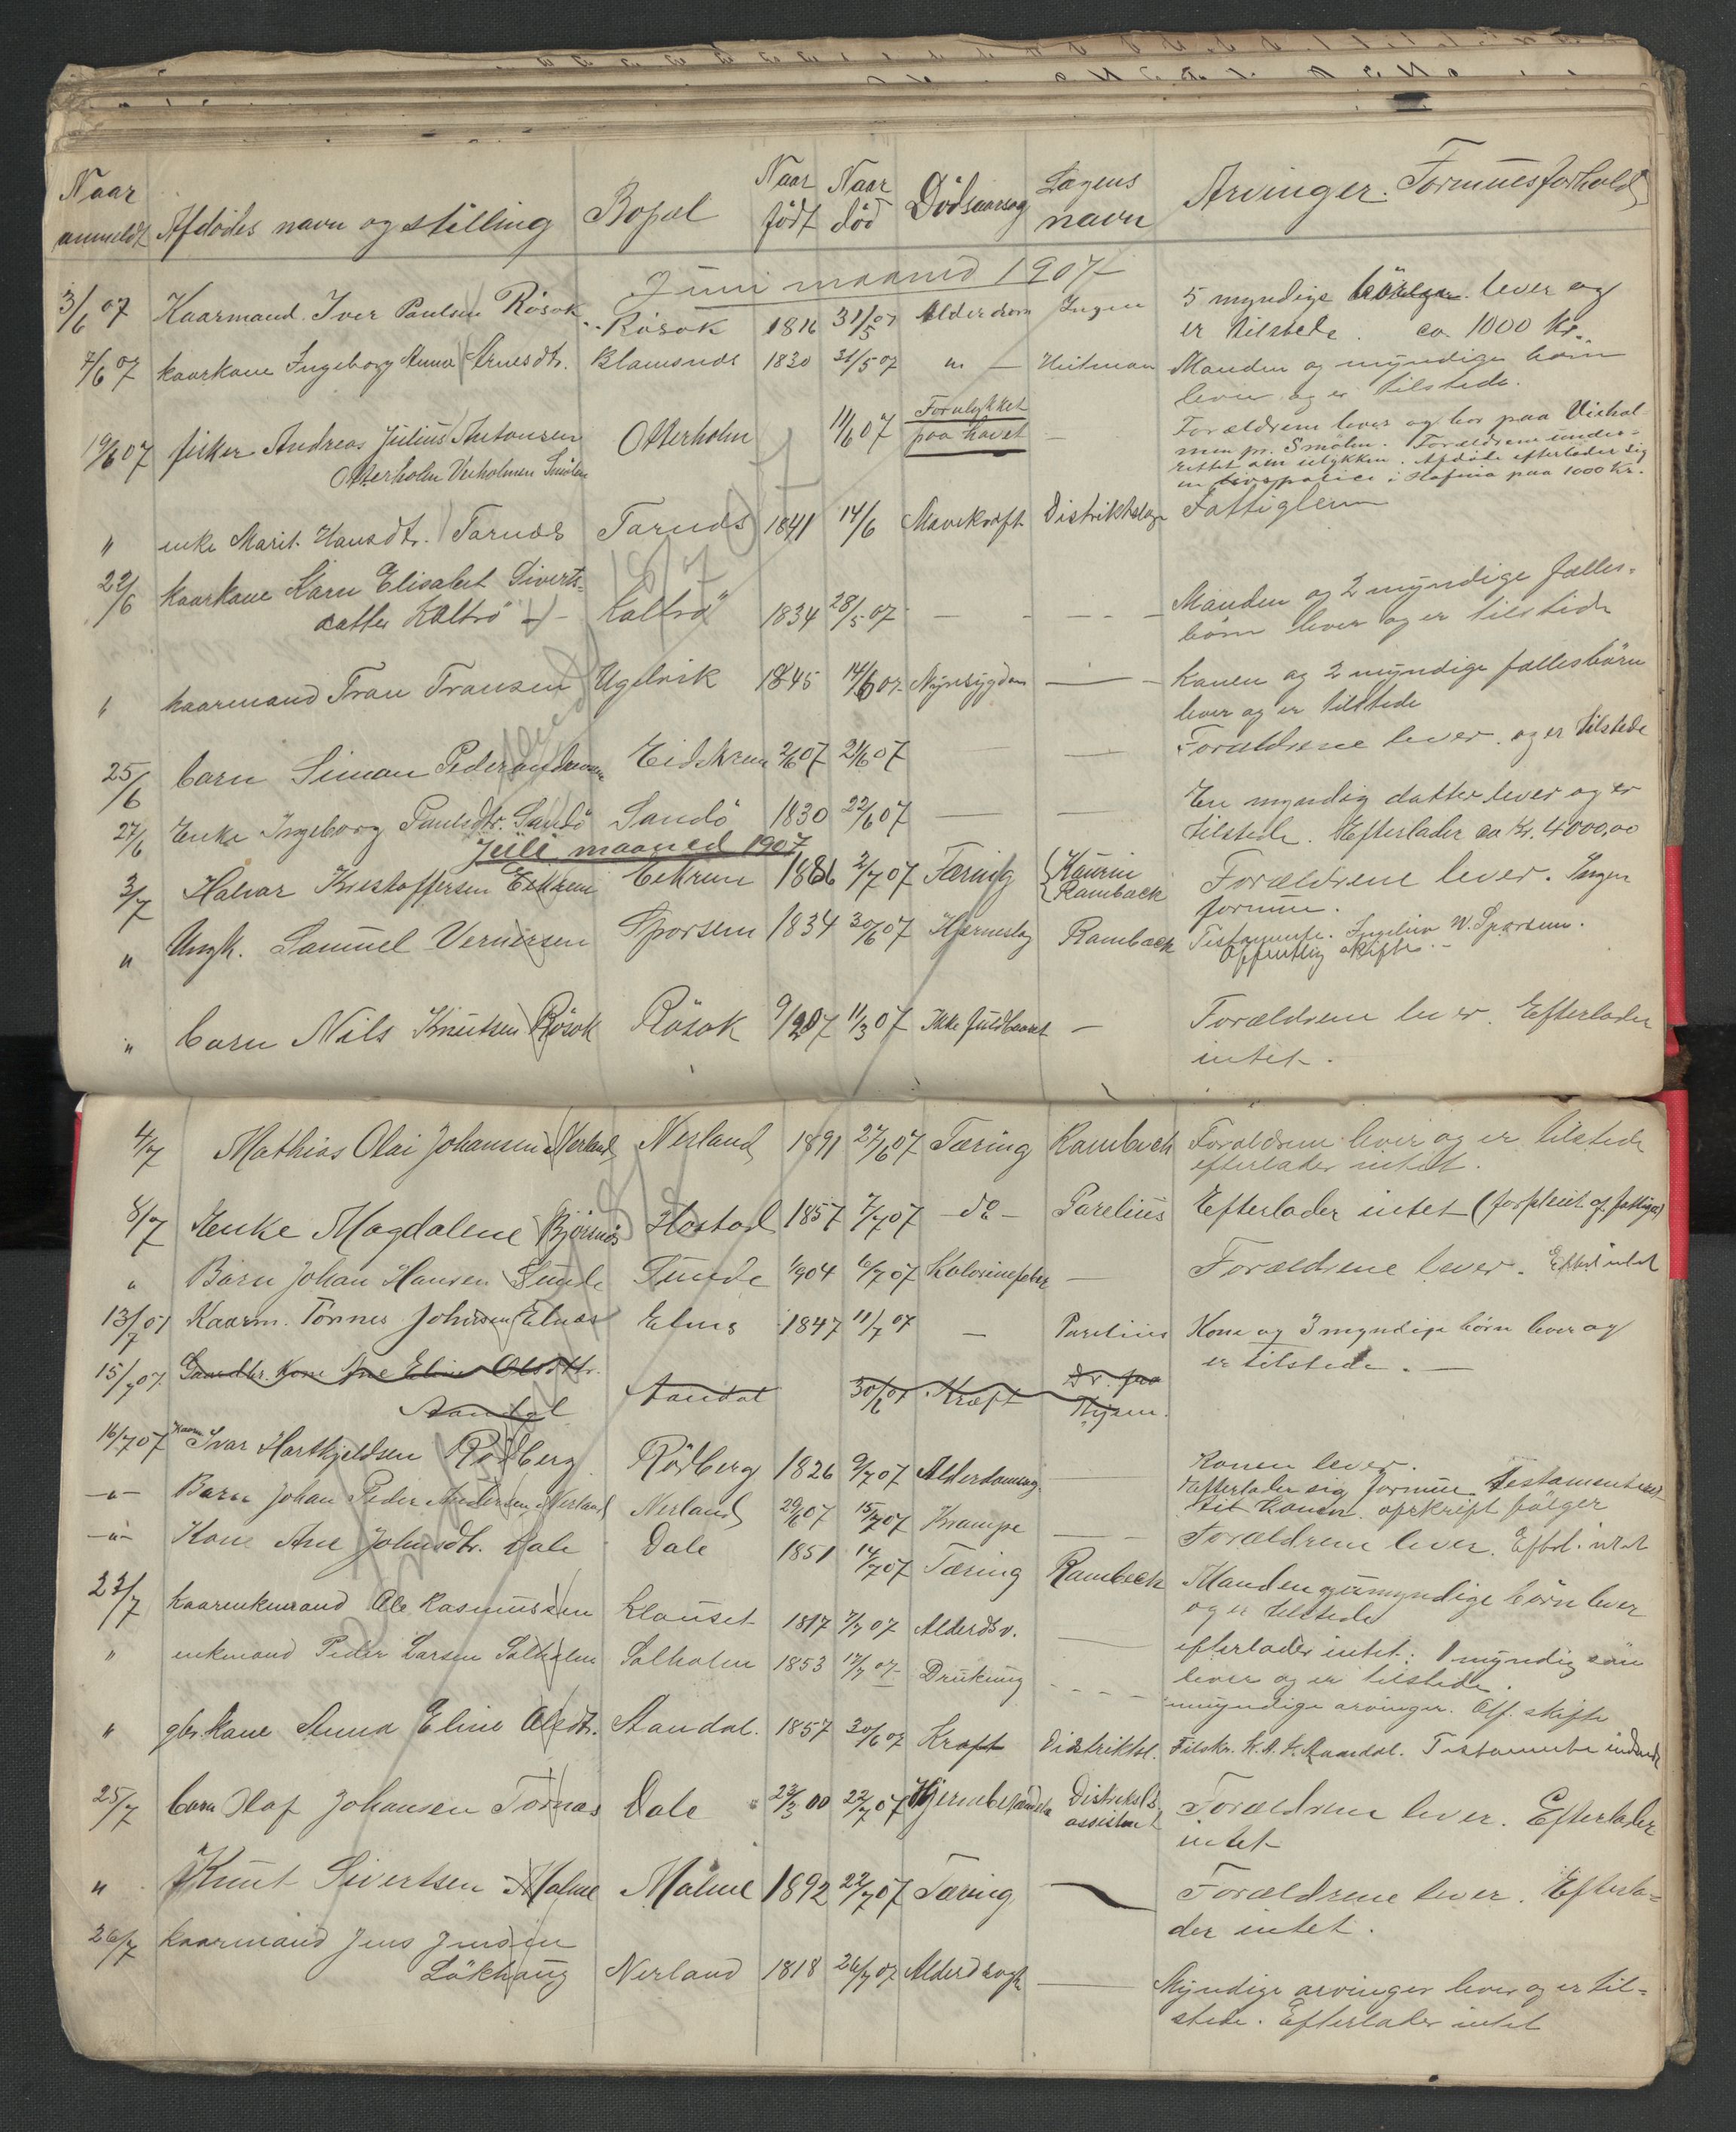 Naar anmeldt Afdödes navn og stilling Bopæl Naar födt Naar död Dödsaarsag Lægens navn Arvinger. Formuesforhold
Juni maaned 1907
3/6 07 Kaarmand Iver Paulsen Rösok Rösok 1816 31/5 07 Alderdom Ingen 5 myndige lever og
er tilstede. ca 1000 kr.
7/6 07 kaarkone Ingeborg Anna Arnesdtr. Blamsnes 1830 31/5 07 " — Manden og myndige börn
lever og er tilstede.
19/6 07 fisker Andreas Julius Antonsen Otterholm 11/6 07 Forulykket
paa havet — Forældrene lever og bor paa
Otterholm Veiholmen Smölen
men pr. Smölen. Forældrene under-
rettet om ulykken. Afdöde efterlader sig
en livspolice i Hafnia paa 1000 Kr.
" enke Marit Hansdtr. Tornæs Tornæs 1841 14/6 Mavekræft Distriktslæge Fattiglem
22/6 kaarkone Karen Elisabet Siverts-
datter Kaltrö Kaltrö 1834 28/5 07 — — Manden og 2 myndige fælles-
börn lever og er tilstede
" kaarmand Tran Transen Ugelvik 1845 14/6 07 Nyresygdom — Konen og 2 myndige fællesbörn
lever og er tilstede
25/6 barn Simon Peder Eidskrem 2/6 07 21/6 07 — — Forældrene lever og er tilstede
27/6 Enke Ingeborg Paulsdtr. Sandö Sandö 1830 22/6 07 — — En myndig datter lever og er
tilstede. Efterlader ca Kr. 4000,00
Juli maaned 1907
3/7 Halvar Kristoffersen Eikrem Eikrem 1886 2/7 07 Tæring Kaurin
Rambæck Forældrene lever. Ingen
formue.
" Ungk. Samuel Vernersen Sporsem 1834 30/6 07 Hjerneslag Rambæck Testamente. W. Sporsem.
Offentlig skifte. —
" barn Nils Knutsen Rösok Rösok 9/2 07 11/3 07 Ikke fuldbaaret — Forældrene lever. Efterlader
intet.
4/7 Mathias Olai Johansen Nerland Nerland 1891 27/6 07 Tæring Rambæck Forældrene lever og er tilstede
efterlader intet.
8/7 Enke Magdalene Björnes Hostad 1857 7/7 07 — do — Parelius Efterlader intet (forpleiet af fattigv.)
" Barn Johan Hansen Sunde Sunde 1904 6/7 07 — Forældrene lever. Efterl intet
13/7 07 Kaarm. Tönnes Johnsen Elnæs Elnes 1847 11/7 07 — Parelius Kone og 3 myndige börn lever og
er tilstede. —
15/7 07 Gaardbr. Kone Ane Eline Olsdtr.
Aandal Aandal 30/6 07 Kræft Dr. fra
16/7 07 Kaarm Ivar Hartkjeldsen Rödberg Rödberg 1826 9/7 07 — Konen lever.
Efterlader sig formue. Testamenteret
til Konen. afskrift fölger
— " — Barn Johan Peder Andersen Nerland Nerland 29/6 07 15/7 07 Krampe — Forældrene lever. Efterl. intet
— " — Kone Ane Johnsdtr. Dale Dale 1851 14/7 07 Tæring Rambæck Manden og umyndige börn lever
og er tilstede
23/7 kaarenkemand Ole Rasmussen Klauset 1817 7/7 07 Alderdsv. — efterlader intet. 1 myndig sön
lever og er tilstede.
" enkemand Peder Larsen Solholm Solholm 1853 17/7 07 Drukning
" gbr. kone Anna Eline Olsdtr. Aandal. 1857 30/6 07 Kræft Distriktsl. umyndige arvinger. Off. skifte
Tilskr. Aandal. Testamente
25/7 barn Olaf Johansen Tornæs Dale 23/3 00 22/7 07 Hjernebetændelse Distriktsl.
assistent Forældrene lever. Efterlader
intet
" Knut Sivertsen Malme Malme 1892 22/7 07 Tæring — Forældrene lever. Efterla-
der intet.
26/7 kaarmand Jens Jensen
Lökhaug Nerland 1818 26/7 07 — Myndige arvinger lever og er til-
stede. Efterlader intet